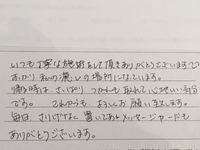 いつも丁寧な施術をして頂きありがとうございます。
すっかり私の癒しの場所になっています。
帰る時は、さっぱり、つかれも取れて心地いい気分
です。これからもよろしくお願い致します。
毎日、さりげなく置いてあるメッセージカードも
ありがとうございます。